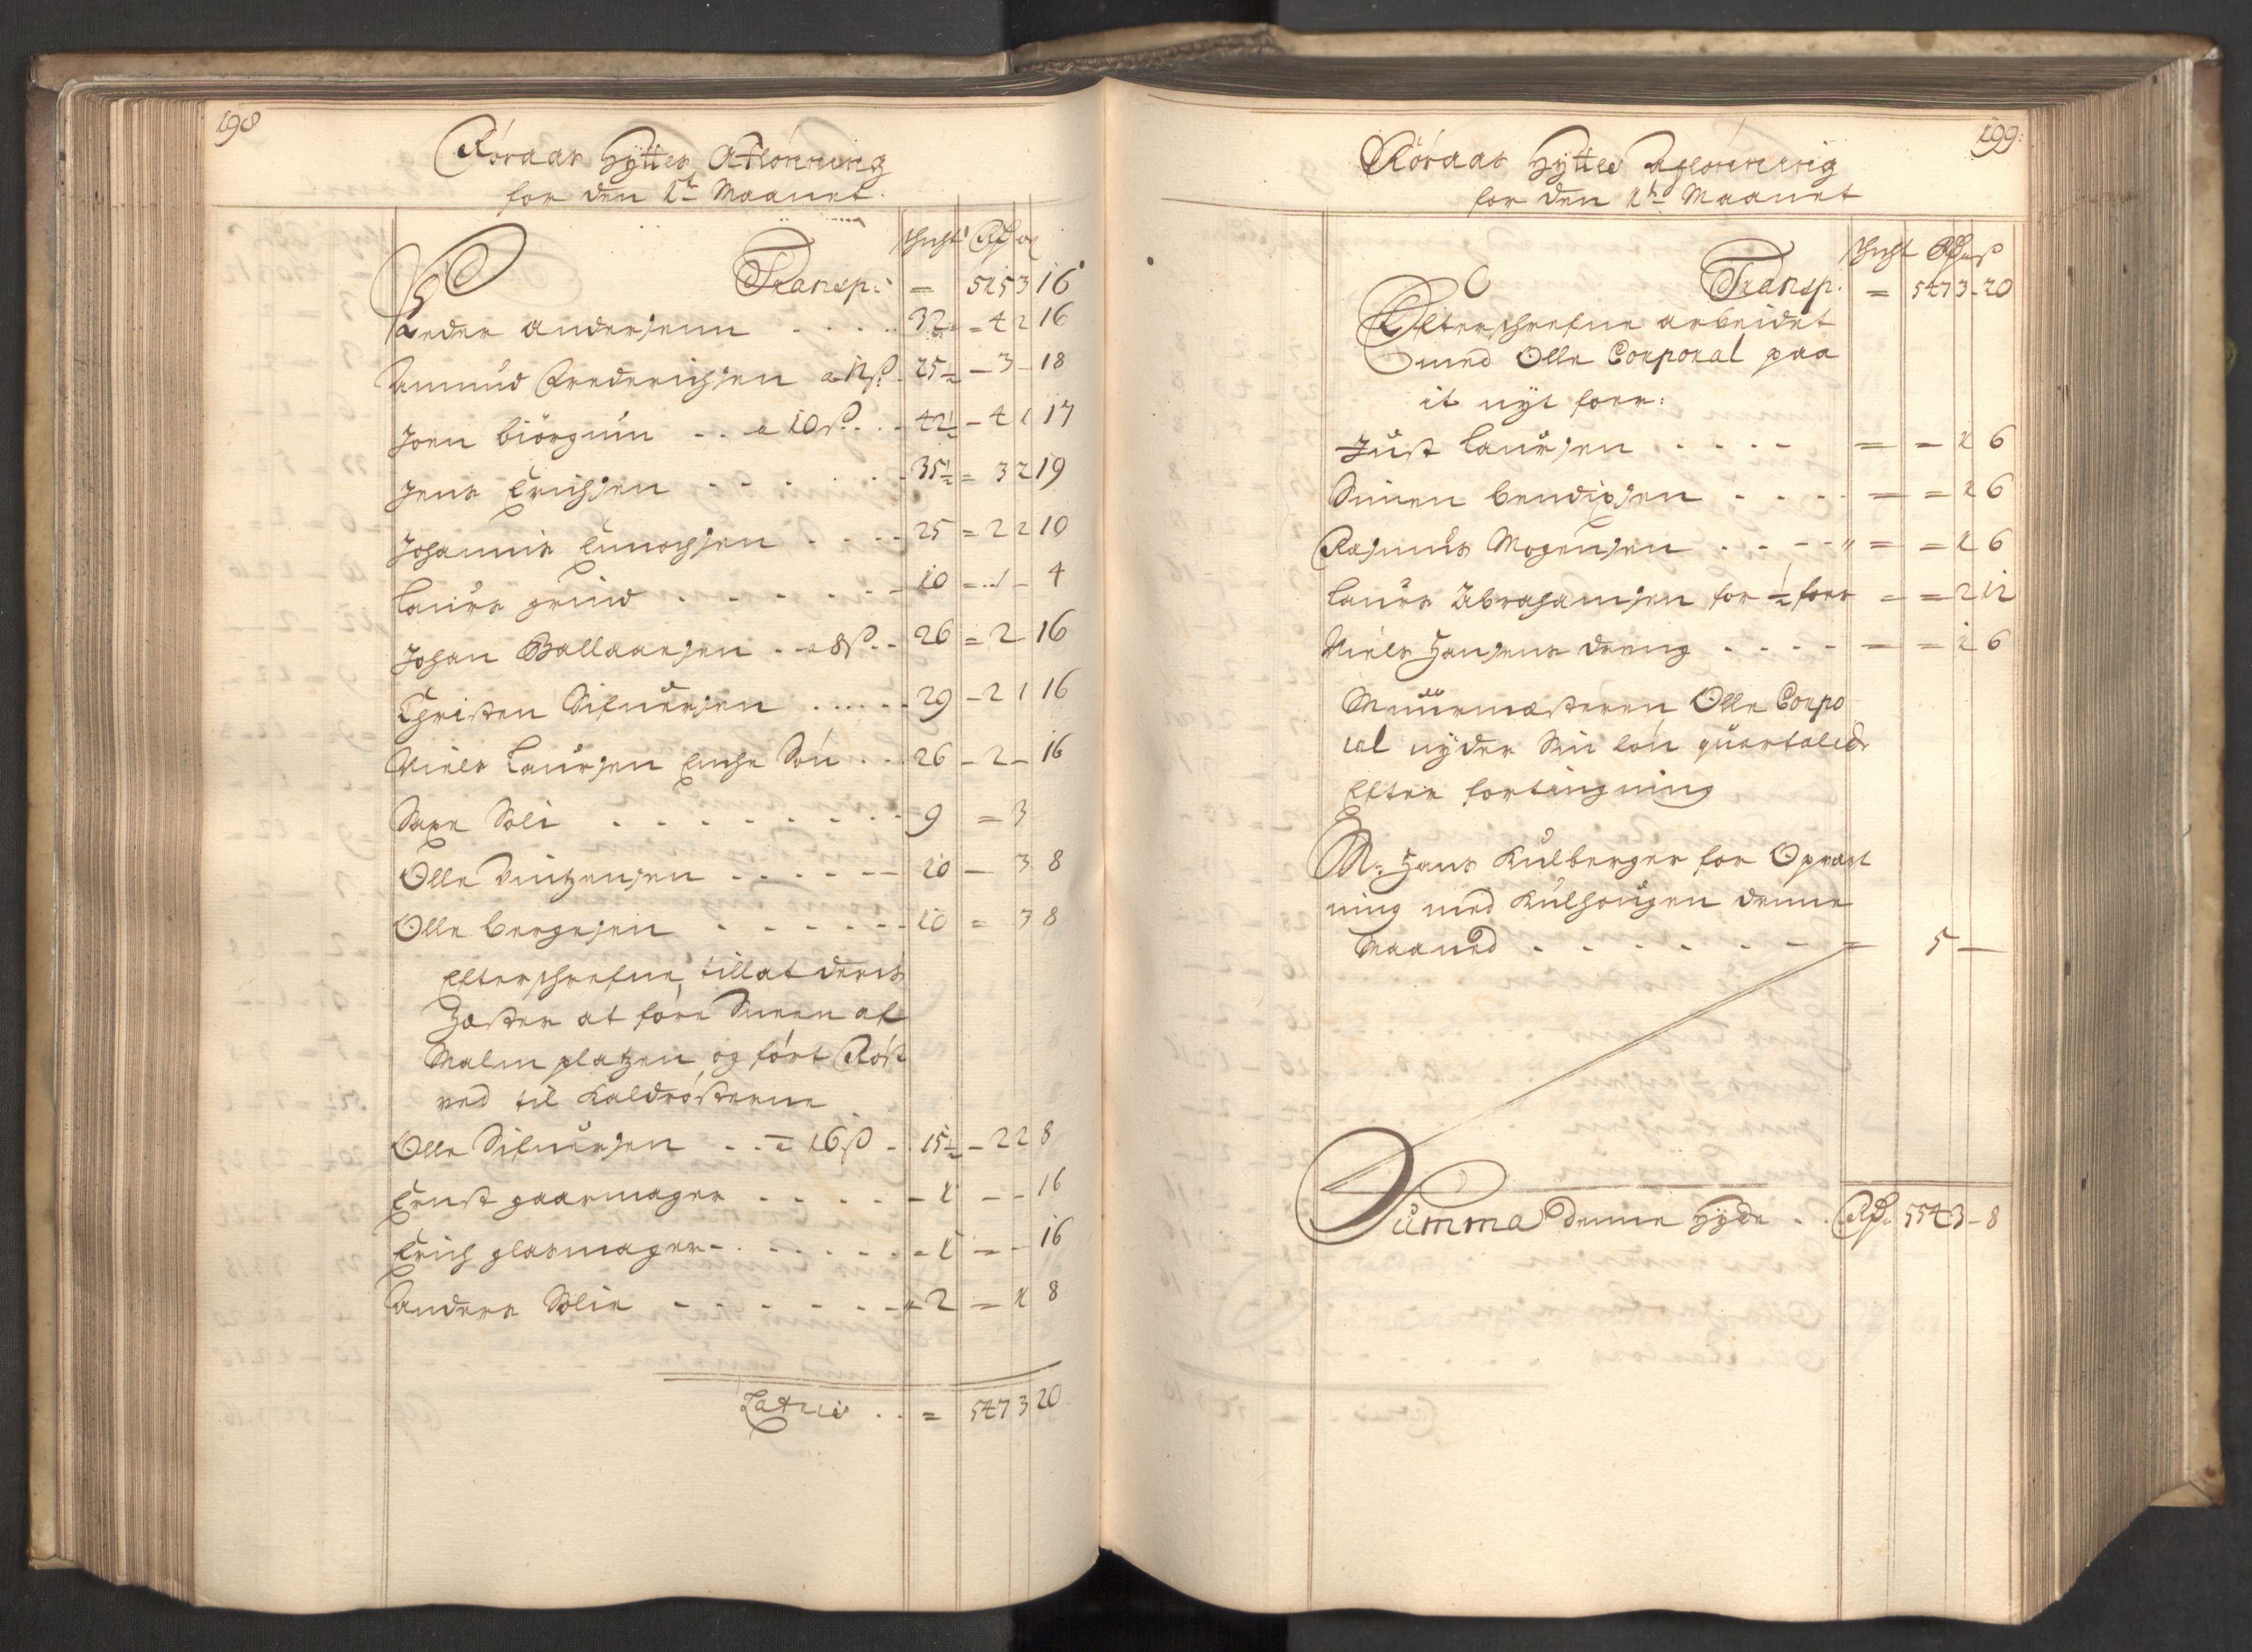 198
Röraas Hyttes Aflönning
for den 1te Maanet.
Schicht Rdr ort
Transp: = 515 3 16
Peder andersenn . . . . 32 = 4 2 16
Amund Frederichsen a 12 ß. 25½ – 3 – 18
Joen biörguun . . a 10 ß. . . 42½ – 4 1 17
Jens Erichsen . . . . . . 35½ = 3 2 19
Johannis Enochsen . . . . 25 = 2 2 10
Laurs grund . . . . . . 10 = 1 – 4
Johan Ballaarsen . a 8 ß. . 26 = 2 – 16
Christen Sifuersen . . . . . 29 – 2 1 16
Niels Laursen Enche Sön . . 26 – 2 – 16
Saxe Soli . . . . . . . . 9 = 3
Olle Vintzensen . . . . . . 10 – 3 8
Olle bergesen . . . . . . 10 = 3 8
Efterschrefne, till at deris
Hester at före Steen af
Malm platzen, og fört Röst
ved til Kaldrösterne
Olle Sifuersen . . a 16 ß . 15½ – 2 2 8
Ernst gaarmager . . . . . – 1 – – 16
Erich glasmager – . . . . . – 1 = – 16
Anders Solie . . . . . . 2 = 1 8
Latus . . = 547 3 20
199:
Röraas Hyttes Aflönning
for den 1te Maanet
Schicht Rdr ß
Transp. = 547 3 – 20
Efterschrefne arbeidet
med Olle Corporal paa
it nyt foer:
Just Laursen . . . . . = – 1 6
Simen bendixsen . . . . = = 1 6
Rasmus Mogensen . . . . = – 1 6
Laurs Abrahamsen for ½ foer = = 2 12
Niels Hansens dreng . . . . = = 1 6
Muurmesteren Olle Corpo
ral nyder Sin lön quartalids
Efter fortingning
M: Hans Kulberger for Opvart
ning med Kulhougen denne
Maaned . . . . . . . = 5 –
Summa denne Hyde . . Rdr. 554 3 – 8